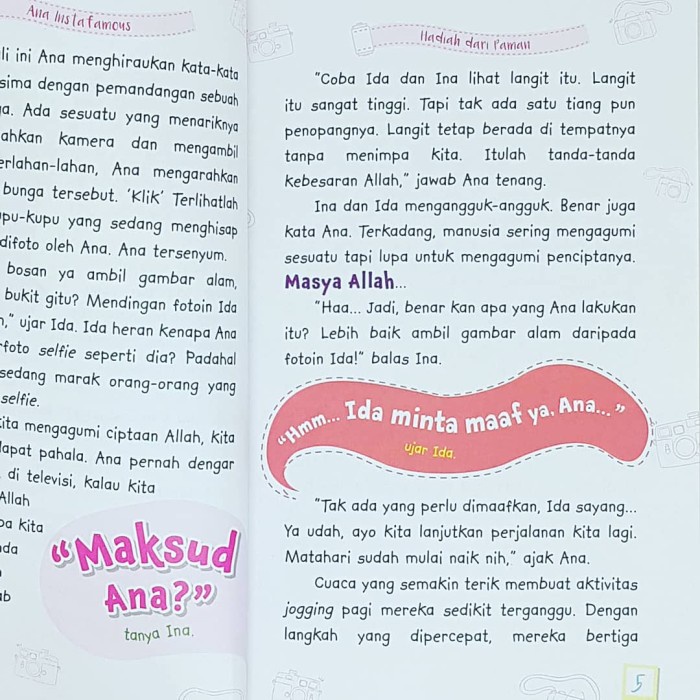 Ana Instafamous
ini Ana menghiraukan kata-kata
dengan pemandangan sebuah
Ada sesuatu yang menariknya
kamera dan mengambil
Ana mengarahkan
bunga tersebut. 'Klik' Terlihatlah
yang sedang menghisap
difoto oleh Ana. Ana tersenyum.
bosan ya ambil gambar alam,
bukit gitu? Mendingan fotoin Ida
ujar Ida. Ida heran kenapa Ana
foto selfie seperti dia? Padahal
sedang marak orang-orang yang
selfie.
mengagumi ciptaan Allah, kita
dapat pahala. Ana pernah dengar
di televisi, kalau kita
Allah
kita
"Maksud
Ana?"
tanya Ina.
Hadiah dari Paman
"Coba Ida dan Ina lihat langit itu. Langit
itu sangat tinggi. Tapi tak ada satu tiang pun
penopangnya. Langit tetap berada di tempatnya
tanpa menimpa kita. Itulah tanda-tanda
kebesaran Allah," jawab Ana tenang.
Ina dan Ida mengangguk-angguk. Benar juga
kata Ana. Terkadang, manusia sering mengagumi
sesuatu tapi lupa untuk mengagumi penciptanya.
Masya Allah...
"Haa... Jadi, benar kan apa yang Ana lakukan
itu? Lebih baik ambil gambar alam daripada
fotoin Ida!" balas Ina.
"Hmm... Ida minta maaf ya, Ana..."
ujar Ida.
"Tak ada yang perlu dimaafkan, Ida sayang...
Ya udah, ayo kita lanjutkan perjalanan kita lagi.
Matahari sudah mulai naik nih," ajak Ana.
Cuaca yang semakin terik membuat aktivitas
jogging pagi mereka sedikit terganggu. Dengan
langkah yang dipercepat, mereka bertiga
5